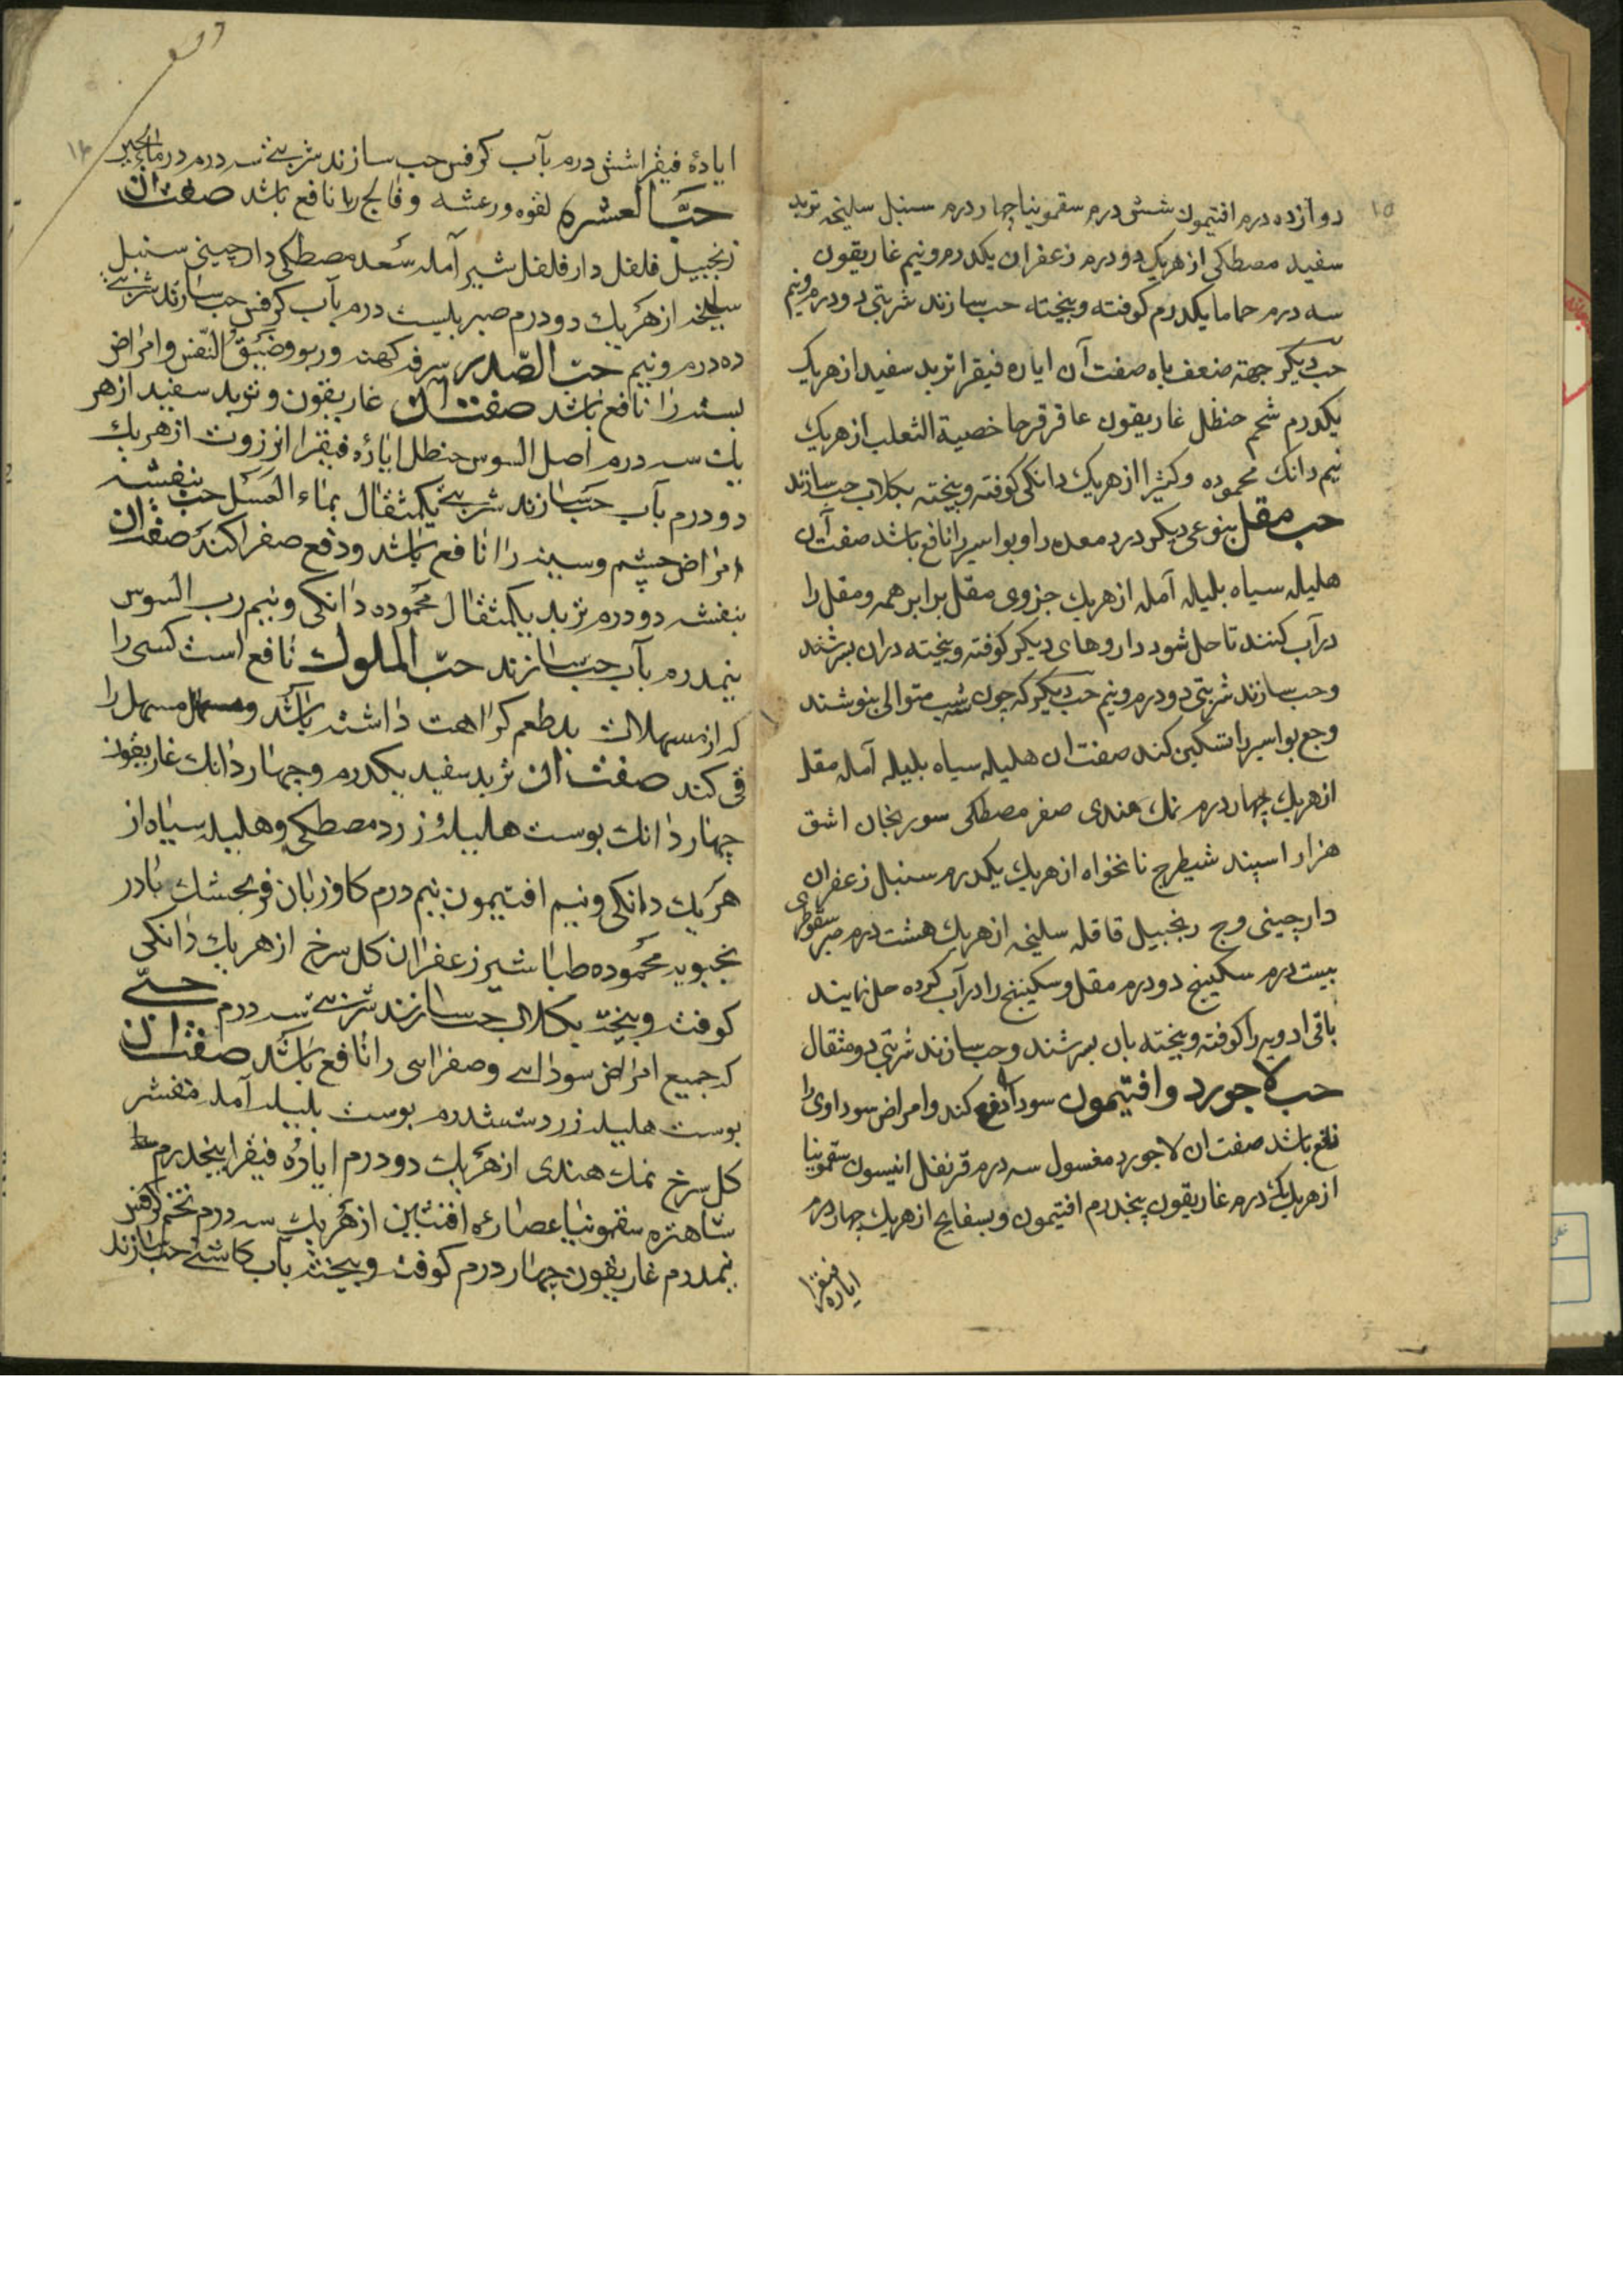 ۱۵
دوازده درم افتیمون شش درم سقمونیا چهار درم سنبل سلیخه تربد
سفید مصطکی از هریک دو درم زعفران یکدرم و نیم غاریقون
سه درم حماما یکدرم کوفته و بیخته حب سازند شربتی دو درم و نیم
حب دیکر جهة ضعف باه صفت آن ایاره فیقرا تربد سفید از هریک
یکدرم شحم حنظل غاریقون عاقرقرحا خصیة الثعلب از هریک
نیم دانک محموده و کثیرا از هریک دانکی کوفته و بیخته بکلاب حب سازند
حب مقل بنوعی دیکر درد معده را و بواسیر را نافع باشد صفت آن
هلیله سیاه بلیله آمله از هریک جزوی مقل برابر همه و مقل را
در آب کنند تا حل شود داروهای دیکر کوفته و بیخته دران بسرشند
و حب سازند شربتی دو درم و نیم حب دیکر که چون شب متوالی بنوشند
وجع بواسیر را تسکین کند صفت ان هلیله سیاه بلیله آمله مقل
از هریک چهار درم نمک هندی صفر مصطکی سورنجان اشق
هزار اسپند شیطرج نانخواه از هریک یکدرم سنبل زعفران
دارچینی وج زنجبیل قاقله سلیخه از هریک هشت درم صبر سقوطری
بیست درم سکبینج دو درم مقل و سکبینج را در آب کرده حل نمایند
باقی ادویه را کوفته و بیخته بان بسرشند و حب سازند شربتی دو مثقال
حب لاجورد و افتیمون سودا را دفع کند و امراض سوداوی را
نافع باشد صفت ان لاجورد مغسول سه درم قرنفل انیسون سقمونیا
از هریک یکدرم غاریقون پنجدرم افتیمون و بسفایج از هریک چهار درم
ایاره فیقرا
ایارهٔ فیقرا شش درم بآب کرفس حب سازند شربتی سه درم در ماء الجبن
حبّ العشره لقوه و رعشه و فالج را نافع باشد صفت آن
زنجبیل فلفل دارفلفل شیر آمله سعد مصطکی دارچینی سنبل
سلیخه از هریک دو درم صبر بیست درم بآب کرفس حب سازند شربتی
ده درم و نیم حبّ الصّدر سرفه کهنه و ربو و ضیق النّفس و امراض
سینه را نافع باشد صفت آن غاریقون و تربد سفید از هر
یک سه درم اصل السوس حنظل ایارهٔ فیقرا انزروت از هریک
دو درم بآب حب سازند شربتی یکمثقال بماء العسل حب بنفشه
امراض چشم و سینه را نافع باشد و دفع صفرا کند صفت آن
بنفشه دو درم تربد یکمثقال محموده دانکی و نیم رب السوس
نیمدرم بآب حب سازند حبّ الملوک نافع است کسی را
که از مسهلات بدطعم کراهت داشته باشد و مسهل را
قی کند صفت آن تربد سفید یکدرم و چهار دانک غاریقون
چهار دانک پوست هلیلهٔ زرد مصطکی و هلیله سیاه از
هریک دانکی و نیم افتیمون نیم درم کاوزبان فرنجمشک بادر
نجبویه محموده طباشیر زعفران کل سرخ از هریک دانکی
کوفته و بیخته بکلاب حب سازند شربتی سه درم حبّی
که جمیع امراض سودائی و صفرائی را نافع باشد صفت آن
پوست هلیله زرد ششدرم پوست بلیله آمله مقشر
کل سرخ نمک هندی از هریک دو درم ایارهٔ فیقرا پنجدرم
شاهتره سقمونیا عصارهٔ افسنتین از هریک سه درم تخم کرفس
نیمدرم غاریقون چهار درم کوفته و بیخته بآب کاسنی حب سازند